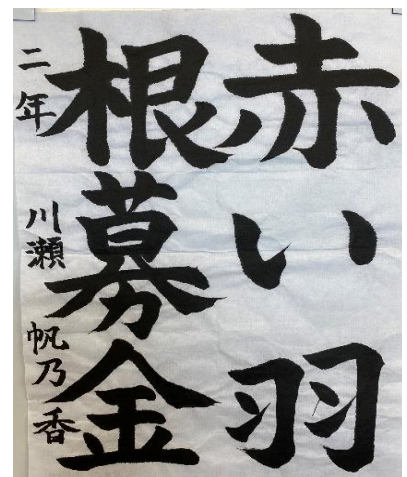 赤い羽
根募金
二年 川瀬 帆乃香